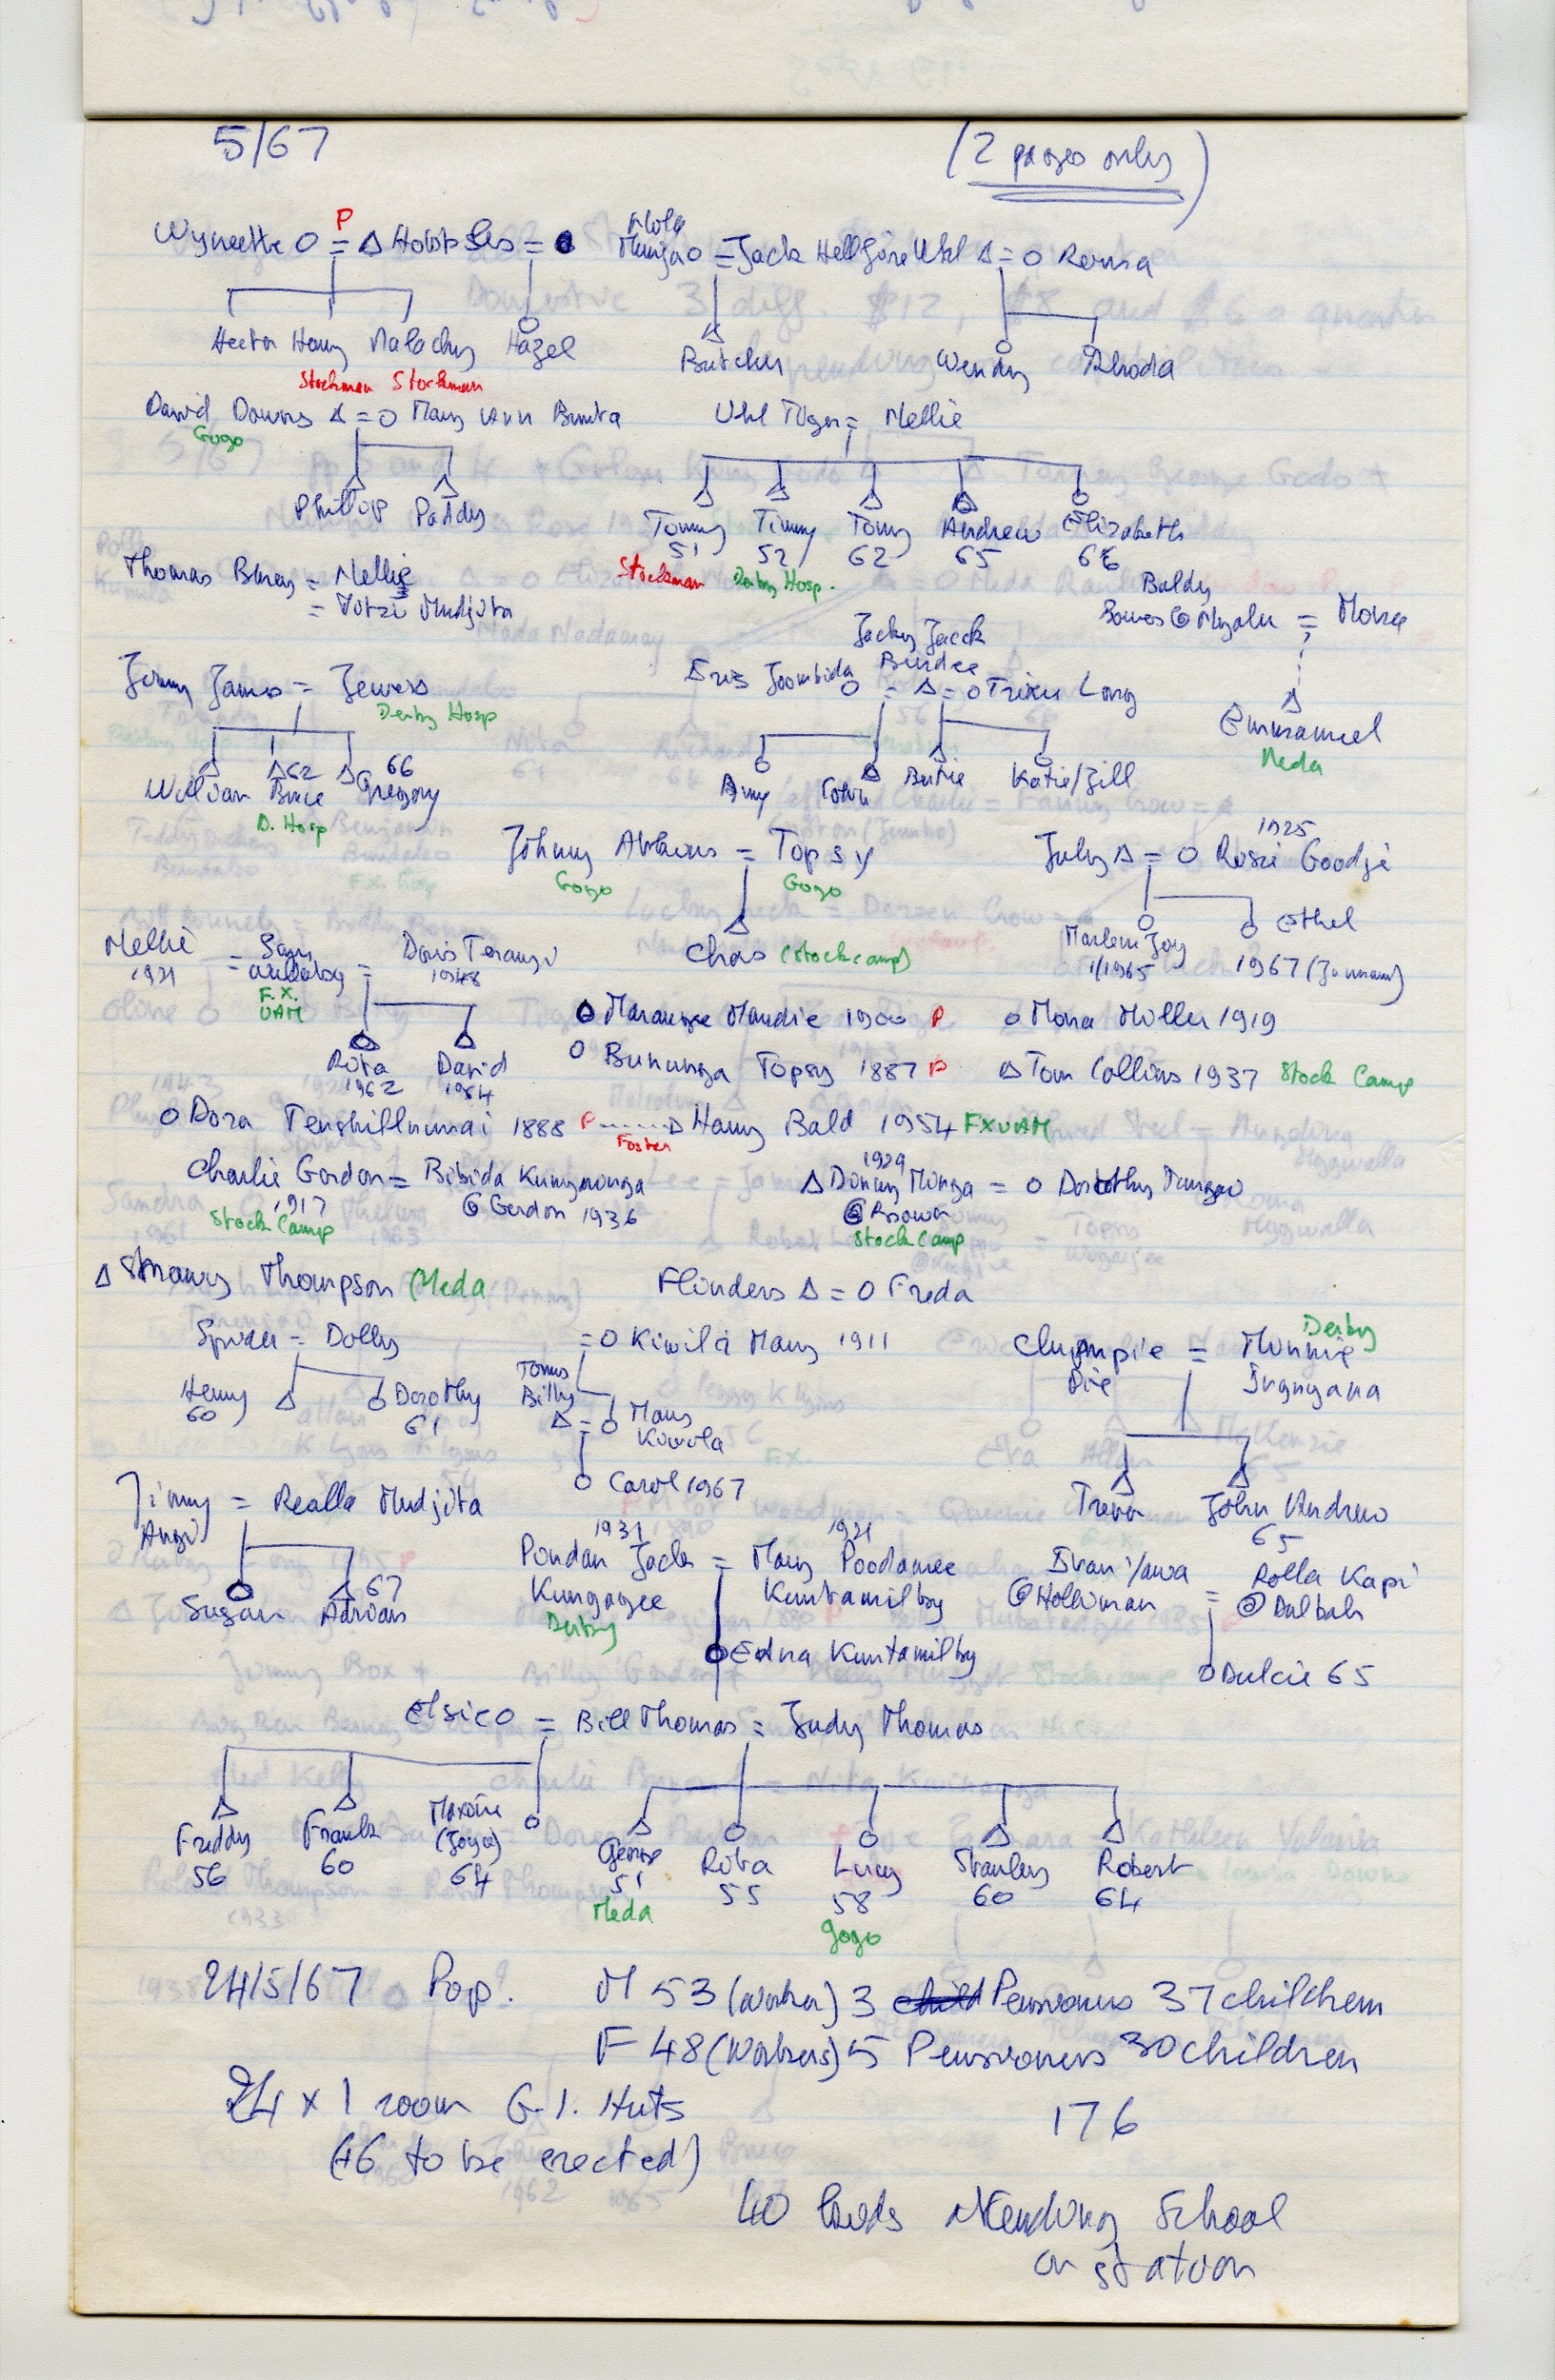 5/67
(2 pages only)
P
Wyneette O = Δ Hobb Les = O
Munga O = Jack Hellfire Uhl Δ = O Rensa
Hector Harry Malachy Hazel
Butcher Wendy Rhoda
Stockman Stockman
David Downs Δ = O Mary Ann Bunta
Gogo
Uhl Tiger = Nellie
Phillip Paddy
Tommy Timmy Tony Andrew Elizabeth
51 52 62 65 66
Stockman Derby Hosp.
Thomas = Nellie
= Mudjita
Baldy
Bowes @ Myalu = Mona
Emmanuel
Meda
Jimmy James = Jewess
Derby Hosp
Jacky Jacek
Joombida O = Δ = O Trixie Long
William Bruce 62 Gregory 66
D. Hosp
Amy Colin Butie Katie/Jill
Johnny Atkins = Topsy
Gogo Gogo
Chas (Stockcamp)
1925
July Δ = O Rosie Goodji
Marlene Joy Ethel
1/1965 1967 (Jannam)
Nellie = Sam = Doris
1921 1948
F.X.
UAM
Rita David
1962 1964
O Marangee Maudie 1900 P
O Mona Miller 1919
O Bununga Topsy 1887 P
Δ Tom Collins 1937 Stock Camp
O Dora 1888 P ------ Δ Harry Bald 1954 FX UAM
Foster
Charlie Gordon = Bibida Kunynunga
1917 @ Gordon 1936
Stock Camp
1929
Δ Donny Munga = O Dorothy Tungao
@ Rosowa
Stock Camp
Δ Strawy Thompson (Meda
Flinders Δ = O Freda
Spider = Dolly
Henry Dorothy
60 61
= O Kiwili Mary 1911
Tomus
Billy
Δ = O Mary
Kiwila
O Carol 1967
Derby
Chumpie = Minnie
Dixie
Trevor John Andrew
65
Jimmy = Realla Mudjita
Angi
Susan Adrian 67
1931 1921
Pondan Jack = Mary Poodamee
Kungagee Kuntamilby
Derby
O Edna Kuntamilby
Brani/awa = Rolla Kapi
@ Holliman @ Dalbah
O Dulcie 65
Elsie O = Bill Thomas = Judy Thomas
Freddy Frank Maxine (Joya)
56 60 64
George Rita Lucy Stanley Robert
51 55 58 60 64
Meda Gogo
24/5/67 Pop. M 53 (worker) 3 child Pensioners 37 children
F 48 (workers) 5 Pensioners 30 children
24 x 1 room G.I. Huts
176
(+6 to be erected)
40 kids Attending School
on station